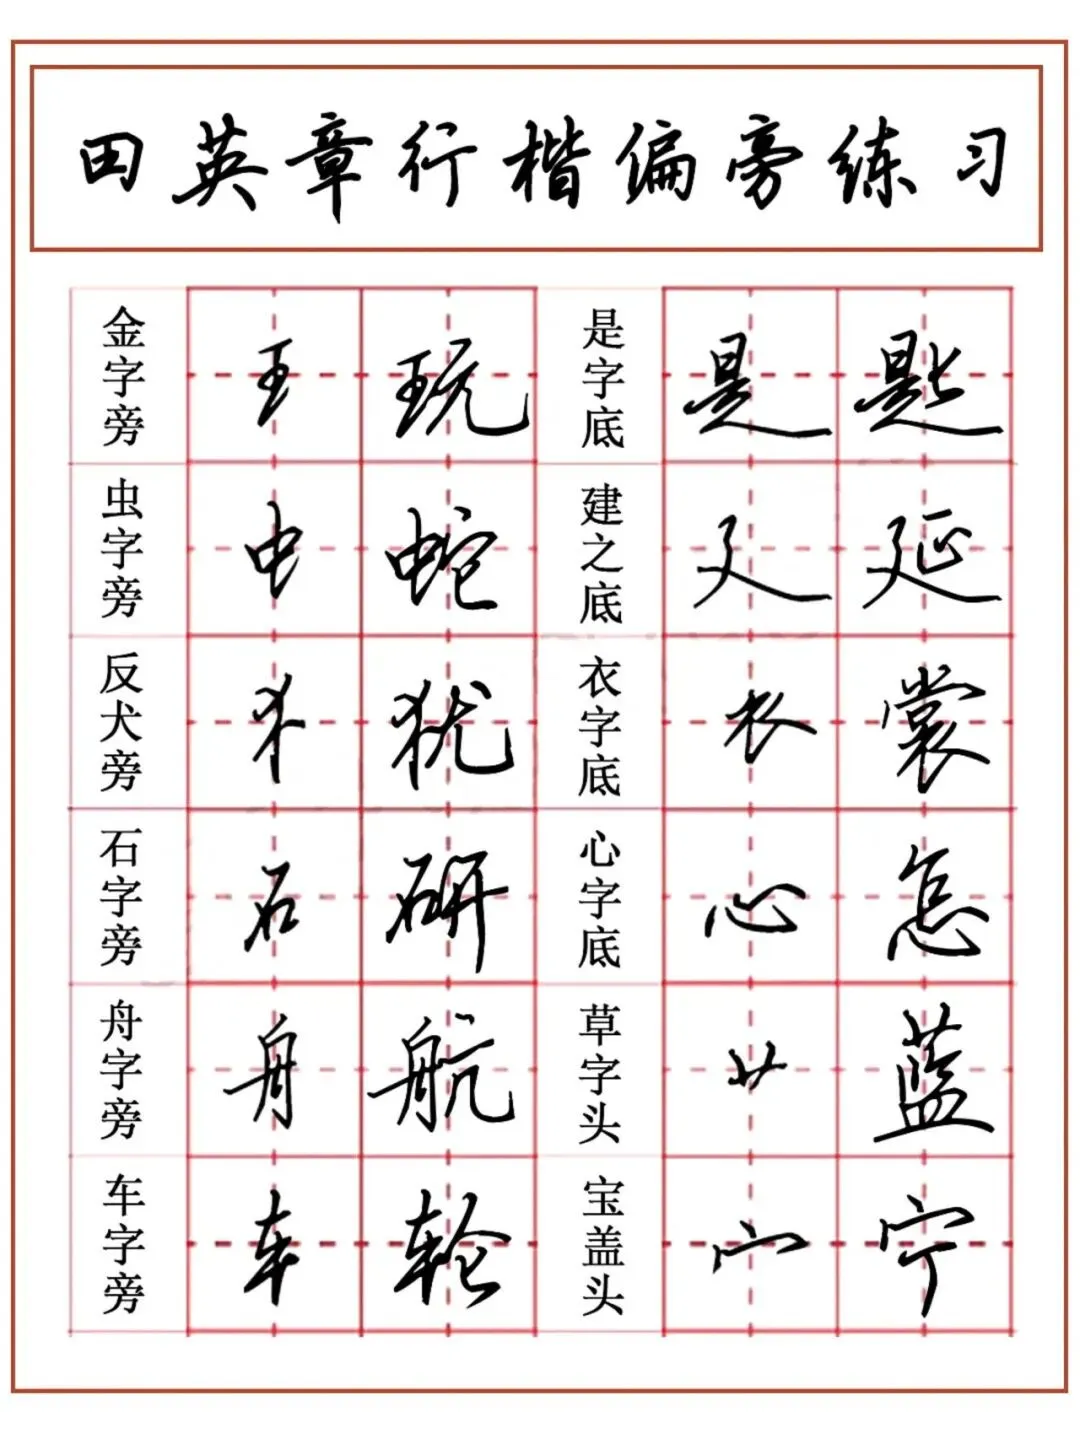 田英章行楷偏旁练习
金字旁 王 玩 是字底 是 匙
虫字旁 虫 蛇 建之底 廴 延
反犬旁 犭 犹 衣字底 衣 裳
石字旁 石 研 心字底 心 怎
舟字旁 舟 航 草字头 艹 蓝
车字旁 车 轮 宝盖头 宀 宁